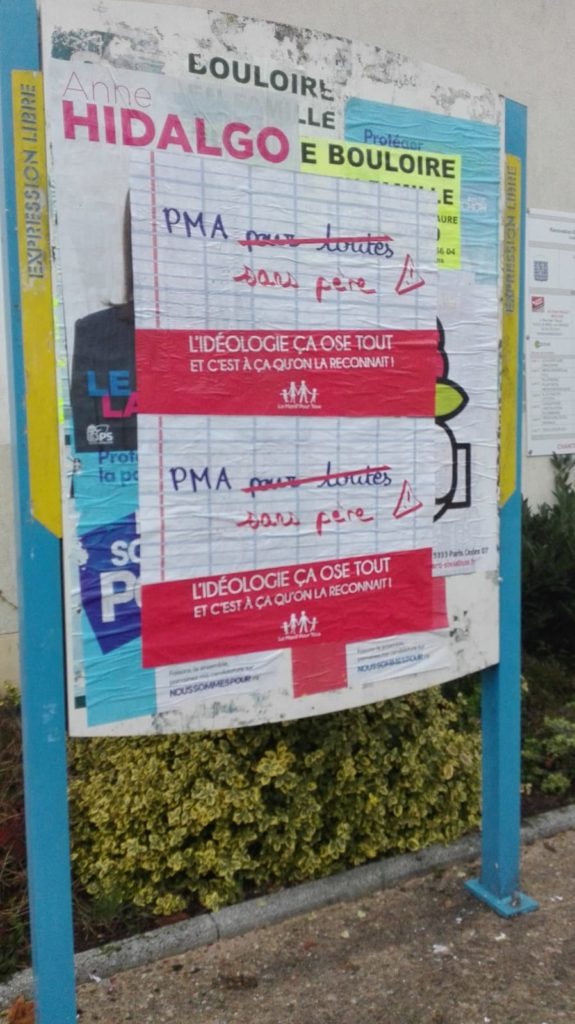 EXPRESSION LIBRE
EXPRESSION LIBRE
BOULOIRE
Anne
HIDALGO
Protéger
E BOULOIRE
PMA pour toutes
sans père
L'IDÉOLOGIE ÇA OSE TOUT
ET C'EST À ÇA QU'ON LA RECONNAIT !
La Manif Pour Tous
LE
LA
PS
la pa
PMA pour toutes
sans père
SO
L'IDÉOLOGIE ÇA OSE TOUT
ET C'EST À ÇA QU'ON LA RECONNAIT !
La Manif Pour Tous
Paris Cedex 07
NOUSSOMMESPOUR
NOUSSOMMESPOUR